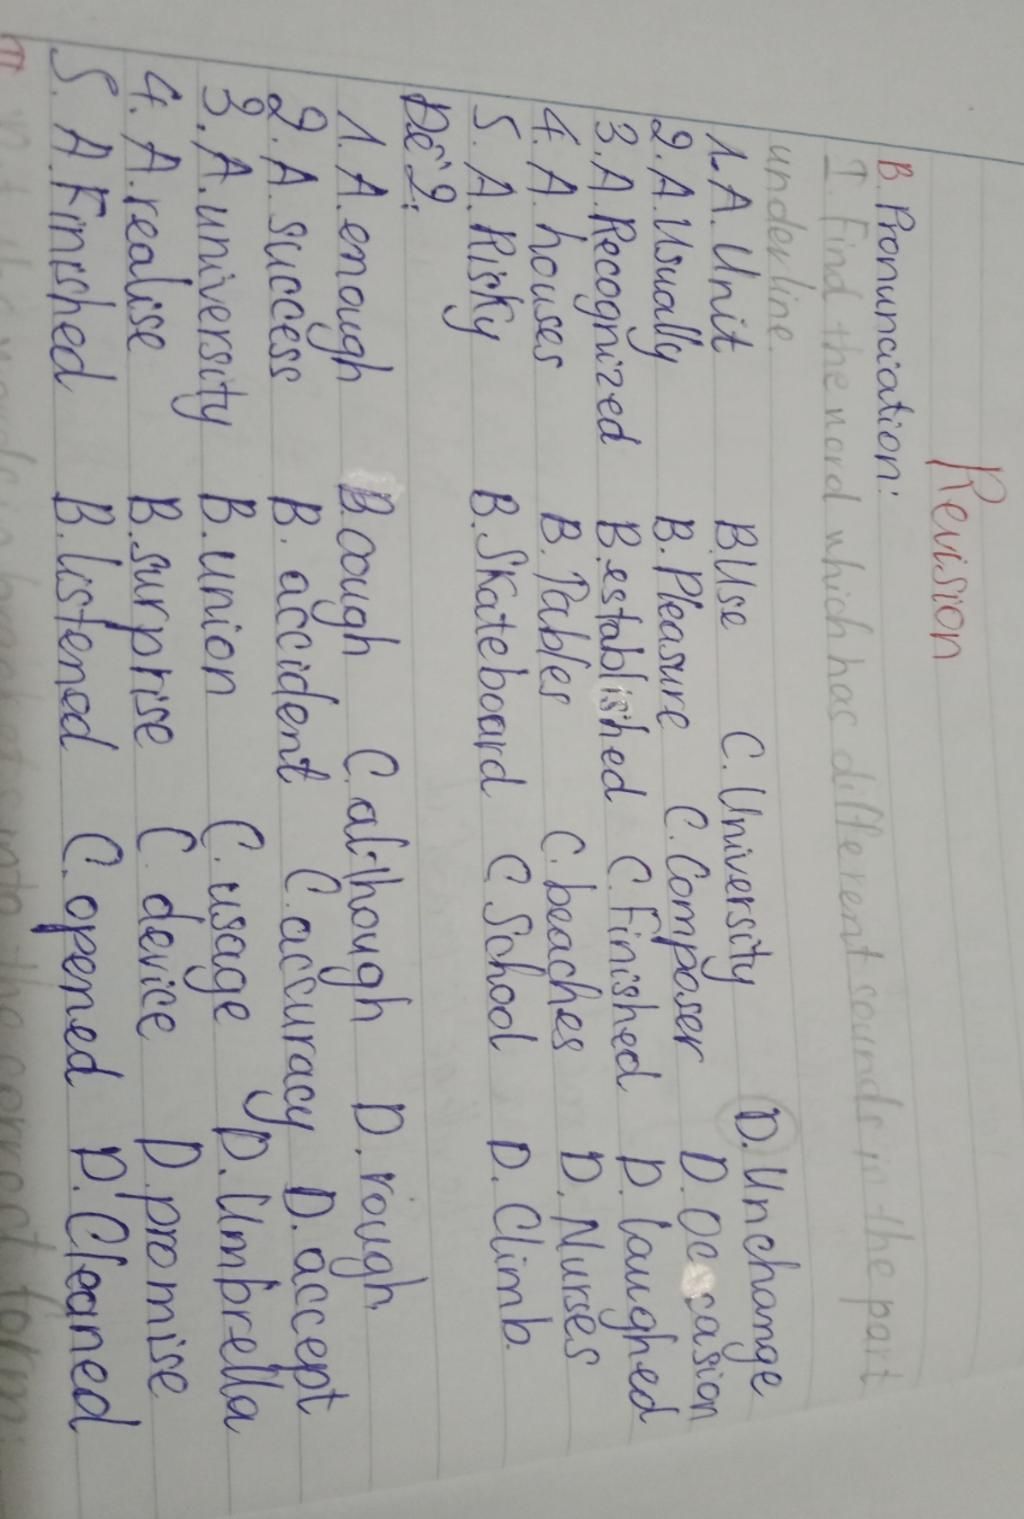 Revision
B. Pronunciation:
I. Find the word which has different sounds in the part
underline.
1. A. Unit B. Use C. University D. Unchange
2. A. Usually B. Pleasure C. Composer D. Occasion
3. A. Recognized B. established C. Finished D. laughed
4. A. houses B. Tables C. beaches D. Nurses
5. A. Risky B. Skateboard C. School D. Climb.
Đề 2:
1. A. enough B. cough C. although D. rough
2. A. success B. accident C. accuracy D. accept
3. A. university B. union C. usage D. Umbrella
4. A. realise B. surprise C. device D. promise
5. A. Finished B. listened C. opened D. Cleaned